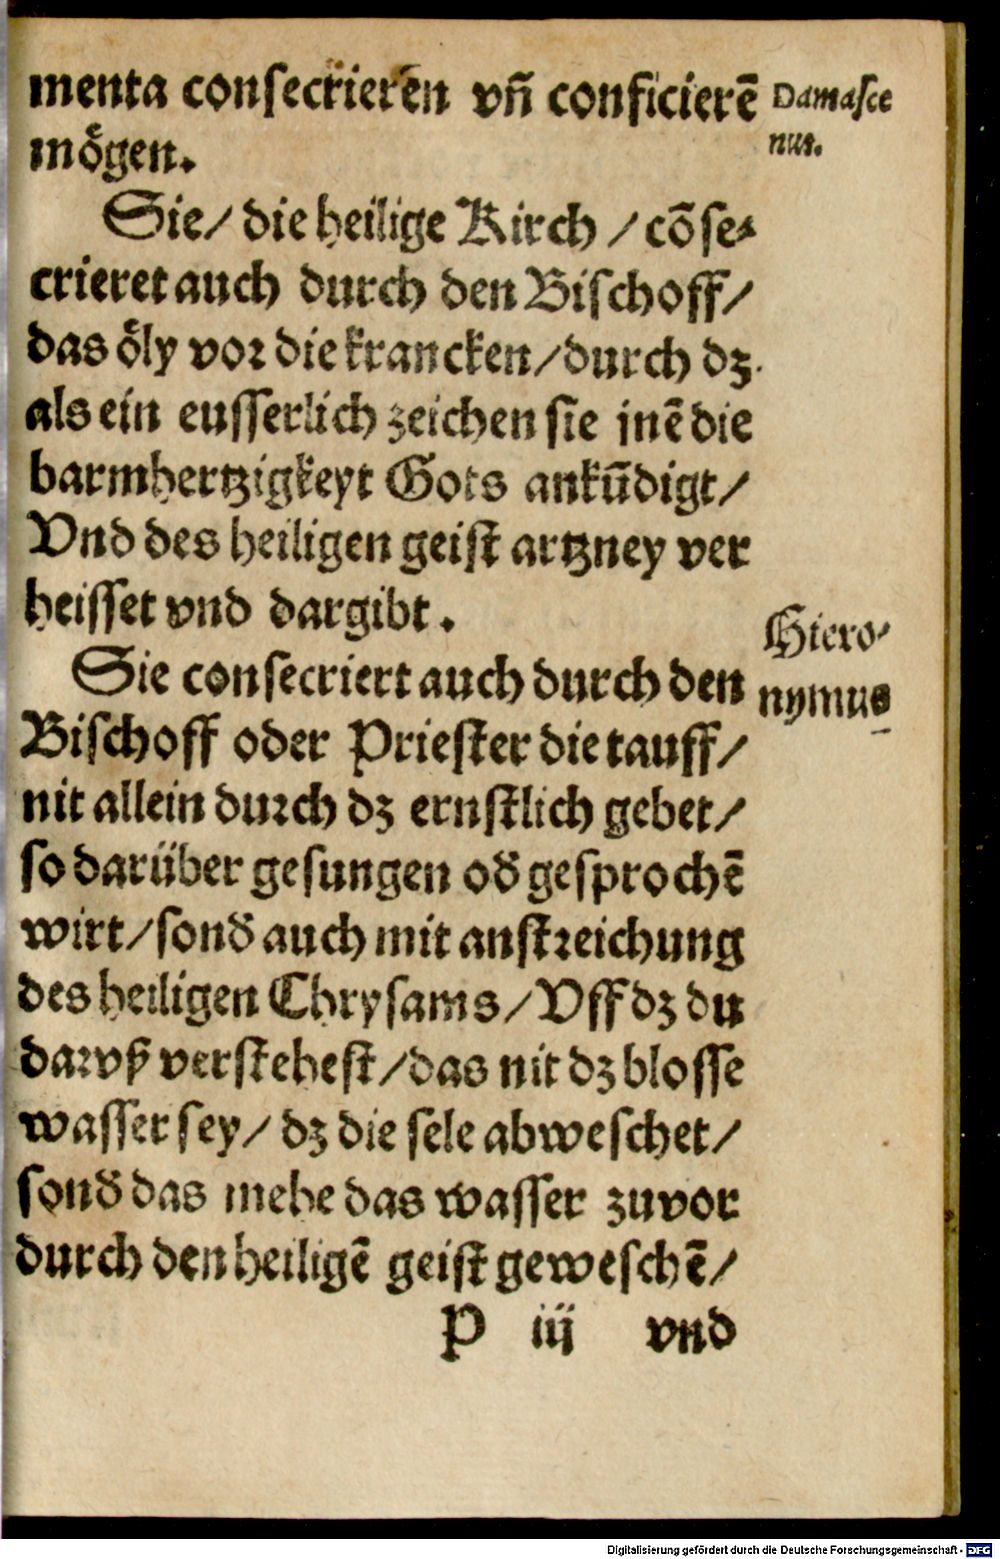 menta consecrieren vñ conficierē
mo&#x364;gen.
Damasce
nus.
Sie/ die heilige Kirch / cōse⸗
crieret auch durch den Bischoff/
das o&#x364;ly vor die krancken/durch dz
als ein eusserlich zeichen sie jnē die
barmhertzigkeyt Gots ankūdigt/
Vnd des heiligen geist artzney ver
heisset vnd dargibt.
Sie consecriert auch durch den
Hiero⸗
nymus
Bischoff oder Priester die tauff/
nit allein durch dz ernstlich gebet/
so darüber gesungen od̓ gesprochē
wirt/sond̓ auch mit anstreichung
des heiligen Chrysams/Vff dz du
darvß verstehest/das nit dz blosse
wasser sey/ dz die sele abweschet/
sond̓ das mehe das wasser zuvor
durch den heiligē geist geweschē/
P iij vnd
Digitalisierung gefördert durch die Deutsche Forschungsgemeinschaft - DFG